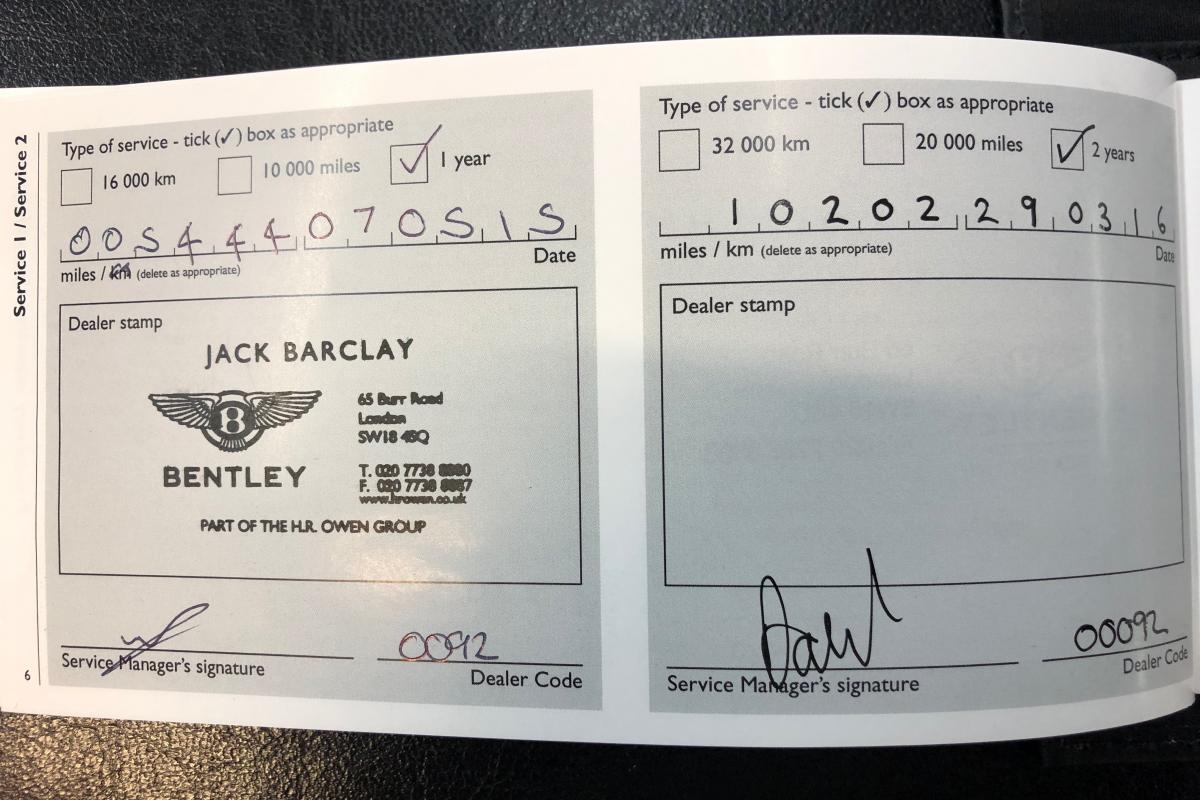 Service 1 / Service 2
6
Type of service - tick (✓) box as appropriate
16 000 km
10 000 miles
✓ 1 year
005444 070515
miles / km (delete as appropriate)
Date
Dealer stamp
JACK BARCLAY
B
BENTLEY
65 Burr Road
London
SW18 4SQ
T. 020 7738 8880
F. 020 7738 8887
www.hrowen.co.uk
PART OF THE H.R. OWEN GROUP
0092
Service Manager's signature
Dealer Code
Type of service - tick (✓) box as appropriate
32 000 km
20 000 miles
✓ 2 years
10202 290316
miles / km (delete as appropriate)
Date
Dealer stamp
00092
Service Manager's signature
Dealer Code